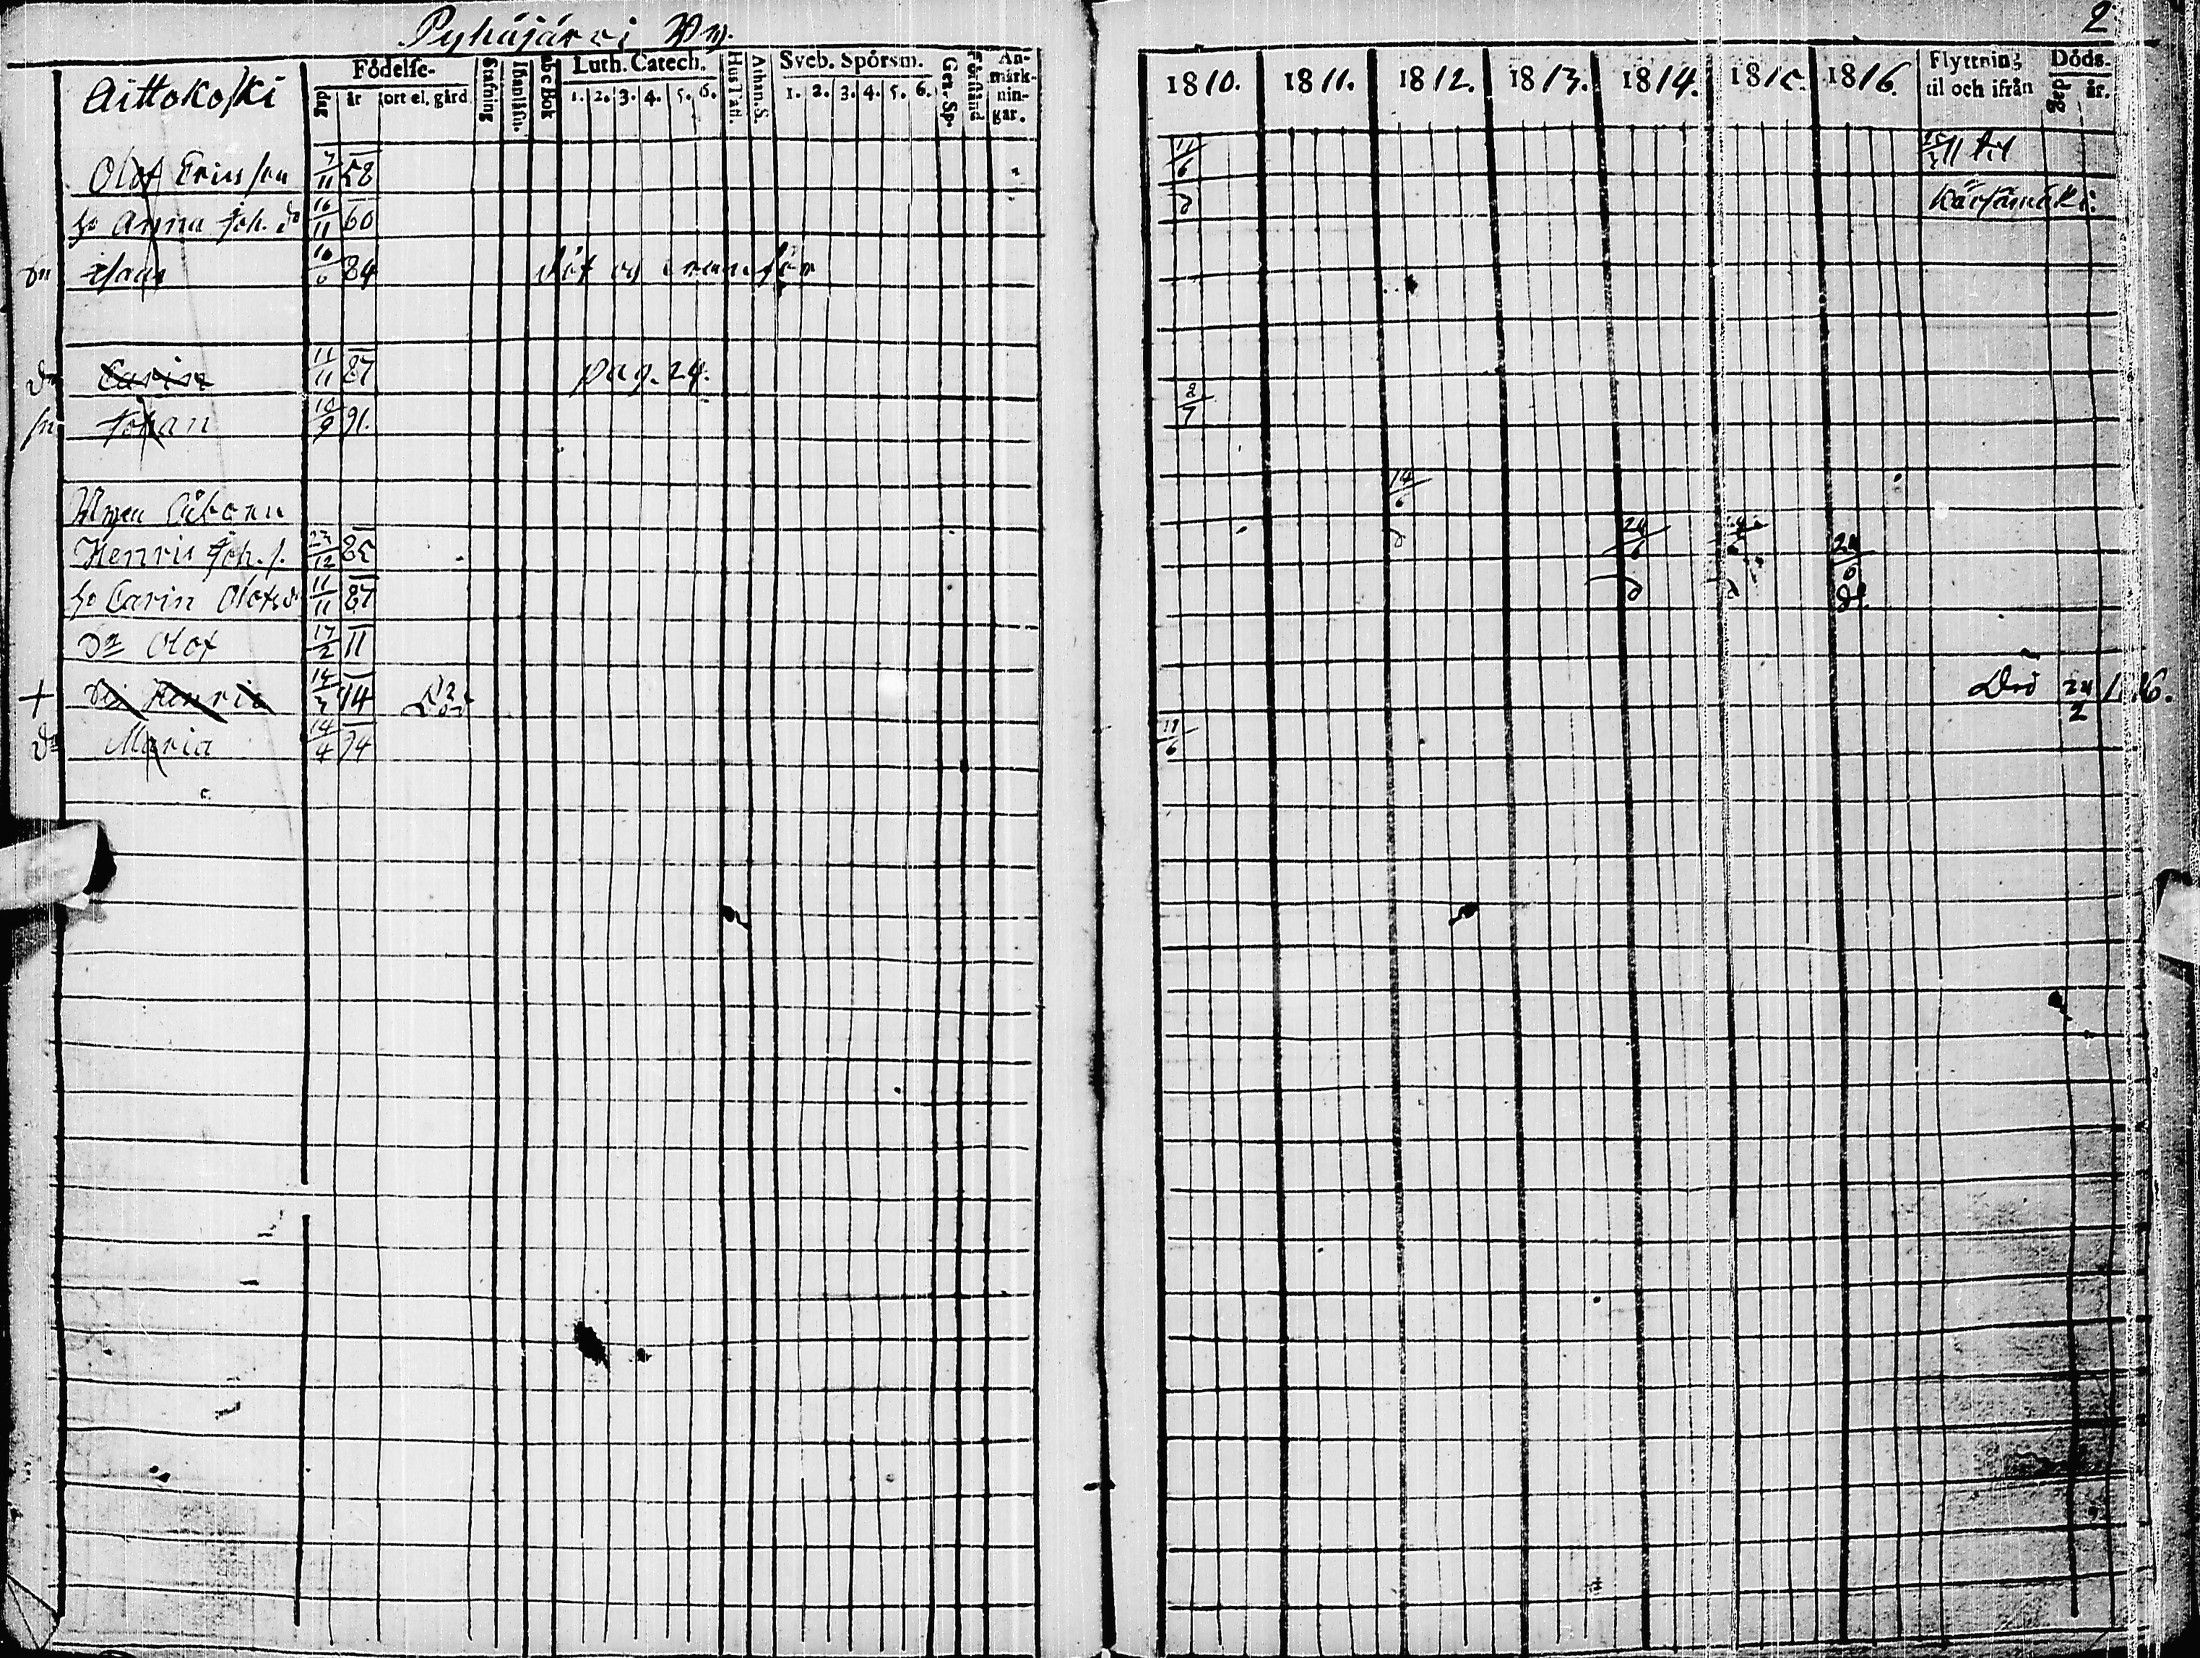 Pyhäjärvi By.
2
Aittokoski
Födelse-
dag
år
ort el. gård
Stafning
Abc Bok
Luth. Catech.
1. 2. 3. 4. 5. 6.
Hus Tafl.
Athan. S.
Sveb. Spörsm.
1. 2. 3. 4. 5. 6.
Gen. Sp.
Förstånd
An-
märk-
nin-
gar.
1810. 1811. 1812. 1813. 1814. 1815. 1816.
Flyttning
til och ifrån
Döds-
dag
år.
Olof Ericsson 7/11 58 11/6 11 til
hu Anna Joh. dr 16/11 60 d Kärsämäki
84
dr Carin 11/11 87 pag. 24.
sn Johan 10/9 91. 8/7
14/6
Henric Joh. s. 23/12 85 d 24/6 24/6
hu Carin Olofsdr 11/11 87 d d d
Sn Olof 17/2 11
+ Henric 14 Död 24/2
dr Maria 14/4 94 11/6